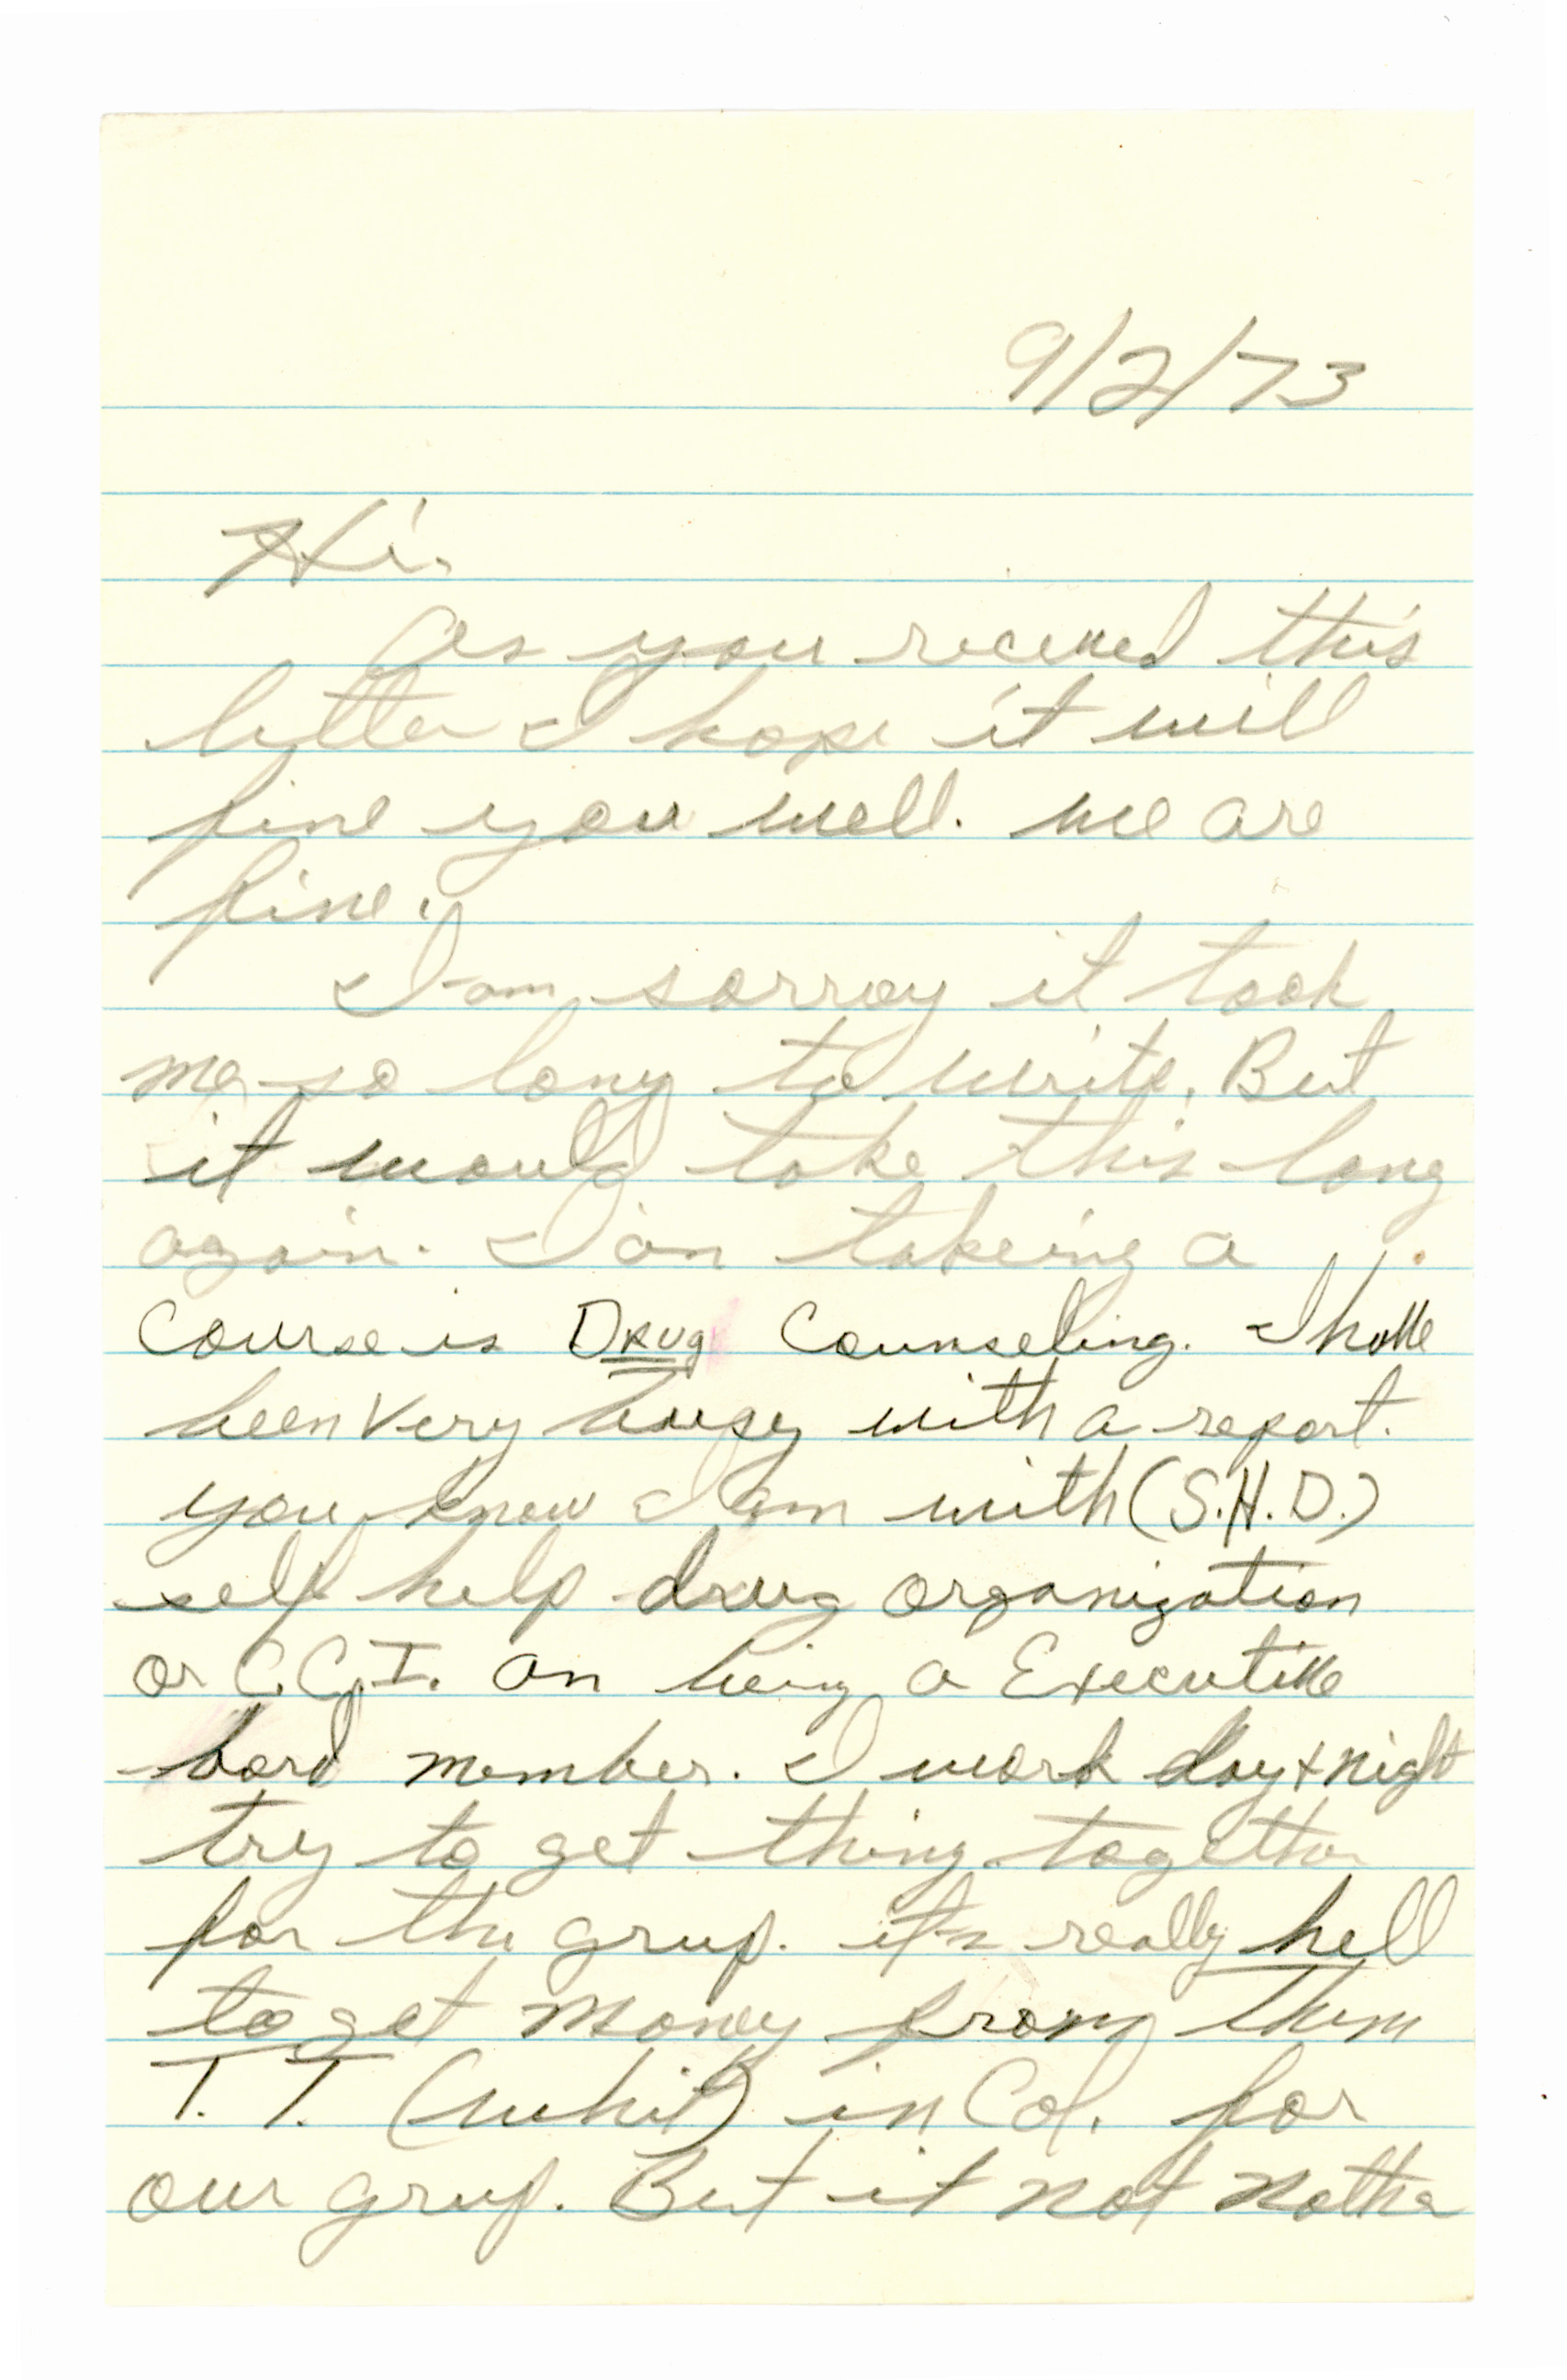 9/2/73
Hi.
As you recieved this
letter I hope it will
fine you well. we are
fine.
I am sorray it took
me so long to write. But
it would take this long
again. I an takeing a
Course is Drug Counseling. I have
been very busy with a report.
you know I am with (S.H.D.)
self help drug organization
or C.C.I. an being a Executive
bord member. I work day + night
try to get thing together
for the grup. it's really hell
to get money from them
T.T. (whit) in Col. for
our grup. But it not